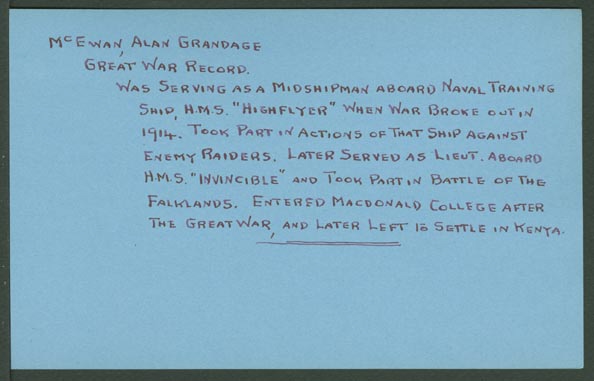 McEwan, Alan Grandage
Great War Record.
Was Serving as a Midshipman aboard Naval Training
Ship, H.M.S. "Highflyer" when War Broke out in
1914. Took Part in Actions of That Ship Against
Enemy Raiders. Later Served as Lieut. aboard
H.M.S. "Invincible" and Took Part in Battle of the
Falklands. Entered Macdonald College after
the Great War, and Later Left to Settle in Kenya.